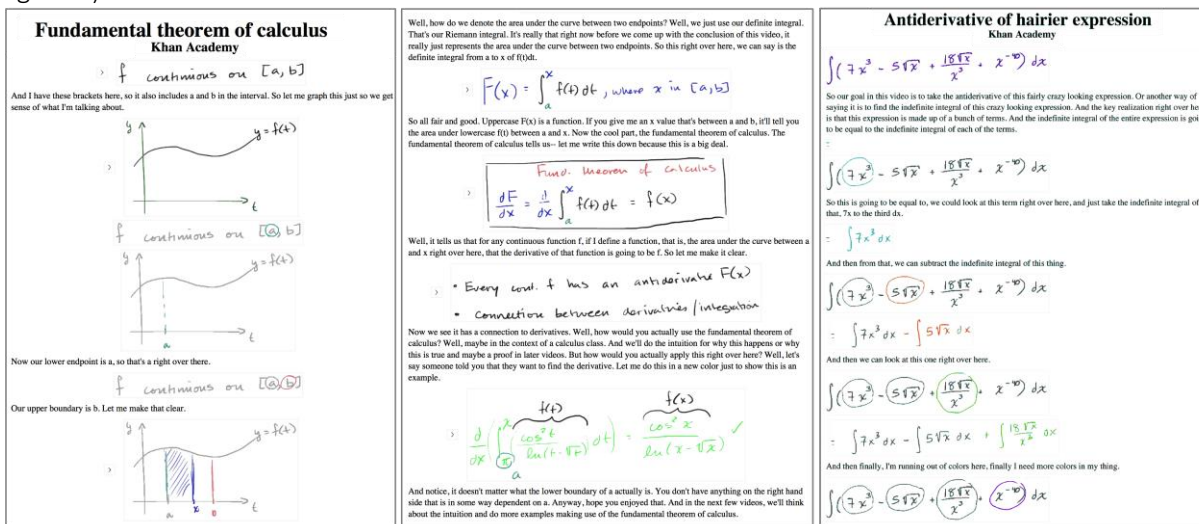 Fundamental theorem of calculus
Khan Academy
› f continious on [a,b]
And I have these brackets here, so it also includes a and b in the interval. So let me graph this just so we get
sense of what I'm talking about.
y
y = f(t)
›
t
f continious on [a, b]
y
y = f(t)
a
t
Now our lower endpoint is a, so that's a right over there.
f continious on [a, b]
Our upper boundary is b. Let me make that clear.
y
y = f(t)
›
a x b t
Well, how do we denote the area under the curve between two endpoints? Well, we just use our definite integral.
That's our Riemann integral. It's really that right now before we come up with the conclusion of this video, it
really just represents the area under the curve between two endpoints. So this right over here, we can say is the
definite integral from a to x of f(t)dt.
› F(x) = ∫ₐˣ f(t) dt, where x in [a,b]
So all fair and good. Uppercase F(x) is a function. If you give me an x value that's between a and b, it'll tell you
the area under lowercase f(t) between a and x. Now the cool part, the fundamental theorem of calculus. The
fundamental theorem of calculus tells us-- let me write this down because this is a big deal.
Fund. theorem of calculus
› dF/dx = d/dx ∫ₐˣ f(t) dt = f(x)
Well, it tells us that for any continuous function f, if I define a function, that is, the area under the curve between a
and x right over here, that the derivative of that function is going to be f. So let me make it clear.
› • Every cont. f has an antiderivative F(x)
• Connection between derivatives/integration
Now we see it has a connection to derivatives. Well, how would you actually use the fundamental theorem of
calculus? Well, maybe in the context of a calculus class. And we'll do the intuition for why this happens or why
this is true and maybe a proof in later videos. But how would you actually apply this right over here? Well, let's
say someone told you that they want to find the derivative. Let me do this in a new color just to show this is an
example.
f(t) f(x)
› d/dx (∫_π^x (cos² t / ln(t-√t)) dt) = cos² x / ln(x-√x) ✓
a
And notice, it doesn't matter what the lower boundary of a actually is. You don't have anything on the right hand
side that is in some way dependent on a. Anyway, hope you enjoyed that. And in the next few videos, we'll think
about the intuition and do more examples making use of the fundamental theorem of calculus.
Antiderivative of hairier expression
Khan Academy
∫(7x³ - 5√x + 18√x/x³ + x⁻⁴⁰) dx
So our goal in this video is to take the antiderivative of this fairly crazy looking expression. Or another way of
saying it is to find the indefinite integral of this crazy looking expression. And the key realization right over her
is that this expression is made up of a bunch of terms. And the indefinite integral of the entire expression is goi
to be equal to the indefinite integral of each of the terms.
:
∫(7x³ - 5√x + 18√x/x³ + x⁻⁴⁰) dx
So this is going to be equal to, we could look at this term right over here, and just take the indefinite integral of
that, 7x to the third dx.
= ∫7x³ dx
And then from that, we can subtract the indefinite integral of this thing.
∫(7x³ - 5√x + 18√x/x³ + x⁻⁴⁰) dx
= ∫7x³ dx - ∫5√x dx
And then we can look at this one right over here.
∫(7x³ - 5√x + 18√x/x³ + x⁻⁴⁰) dx
= ∫7x³ dx - ∫5√x dx + ∫18√x/x³ dx
And then finally, I'm running out of colors here, finally I need more colors in my thing.
∫(7x³ - 5√x + 18√x/x³ + x⁻⁴⁰) dx